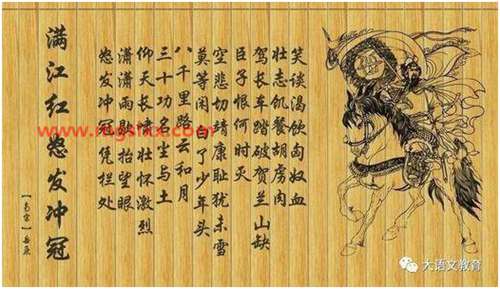 满江红怒发冲冠
【南宋】岳飞
怒发冲冠凭栏处
潇潇雨歇抬望眼
仰天长啸壮怀激烈
三十功名尘与土
八千里路云和月
莫等闲白了少年头
空悲切靖康耻犹未雪
臣子恨何时灭
驾长车踏破贺兰山缺
壮志饥餐胡虏肉
笑谈渴饮匈奴血
大语文教育